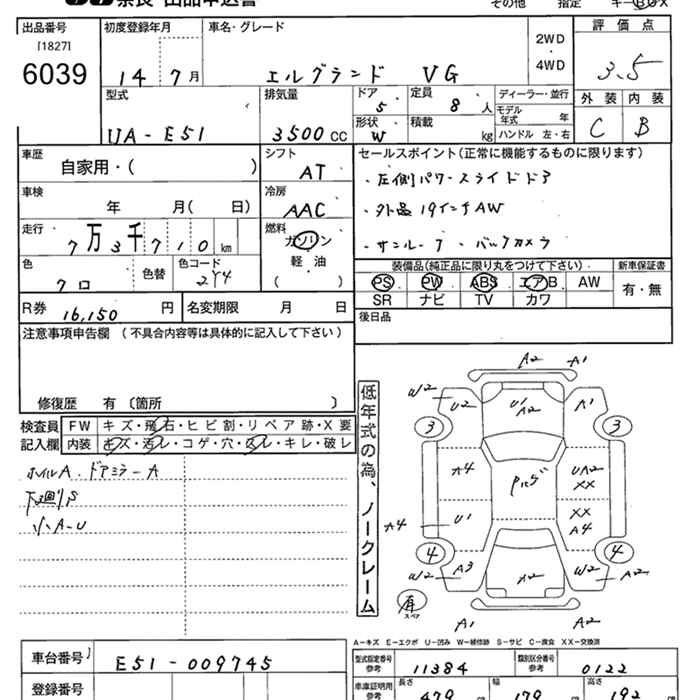 奈良 出品申込書
その他 指定 キーBOX
出品番号 初度登録年月 車名・グレード 2WD・4WD 評価点
[1827]
6039 14年7月 エルグランド VG 3.5
型式 排気量 ドア 定員 ディーラー・並行 外装 内装
5 8人 モデル年式 年
UA-E51 3500cc 形状 積載 C B
W kg ハンドル 左・右
車歴 シフト セールスポイント(正常に機能するものに限ります)
自家用・( ) AT
・左側パワースライドドア
車検 冷房
年 月( 日) AAC ・外品19インチAW
走行 燃料
7万3千710km ガソリン ・サンルーフ ・バックカメラ
色 色替 色コード 軽油
クロ 2Y4 ( )
装備品(純正品に限り丸をつけて下さい) 新車保証書
PS PW ABS エアB AW 有・無
SR ナビ TV カワ
R券 16,150円 名変期限 月 日
後日品
注意事項申告欄(不具合内容等は具体的に記入して下さい)
修復歴 有〔箇所 〕
検査員記入欄 FW キズ・飛石・ヒビ割・リペア跡・X要
内装 キズ・汚レ・コゲ・穴・スレ・キレ・破レ
ホイルA・ドアミラーA
下廻りS
小A-U
低年式の為、ノークレーム
A2 A1
W2 U2 U1 A2 A1
3 3
A4 Pれき UA2 XX
A4 U1 XX A4
4 4
W2 A3 A2 W2 A2
有 スペア
A1 A2
A-キズ E-エクボ U-凹み W-補修跡 S-サビ C-腐食 XX-交換済
車台番号 E51-009745
型式指定番号 参考 11384 類別区分番号 参考 0122
登録番号
車庫証明用 参考 長さ 479 幅 179 高さ 192